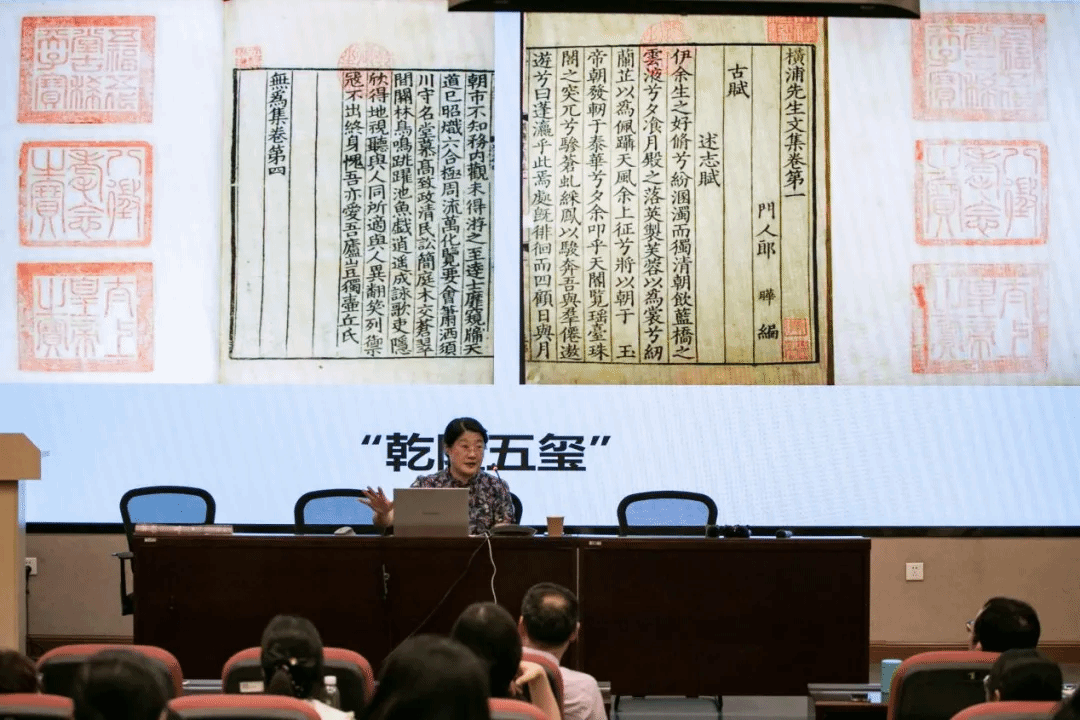 八徵耄念之寶
太上皇帝之寶
朝市不知務内觀未得游之至達士靡窺牖天
道已昭熾六合極周流萬化覽要會蕭洒須
川守名堂慕髙致政清民訟簡庭末交蒼翠
間關林鳥鳴跳躍池魚戲逍遙成詠歌吏隱
欣得地視聽與人同所適與人異翻笑列禦
冦不出終身愧吾亦愛吾廬豈獨壷丘氏
無為集卷第四
橫浦先生文集卷第一
門人郎 曄 編
古賦
述志賦
伊余生之好脩兮紛溷濁而獨清朝飲藍橋之
雲液兮夕飡月殿之落英製芙蓉以為裳兮紉
蘭芷以為佩躡天風余上征兮將以朝于 玉
帝朝發軔于泰華兮夕余叩乎天閽覽瑶臺珠
闕之突兀兮驂蒼虬綵鳳以駿奔吾與羣僊遨
遊兮曰蓬瀛乎此焉處旣徘徊而四顧日與月
八徵耄念之寶
太上皇帝之寶
“乾隆五玺”